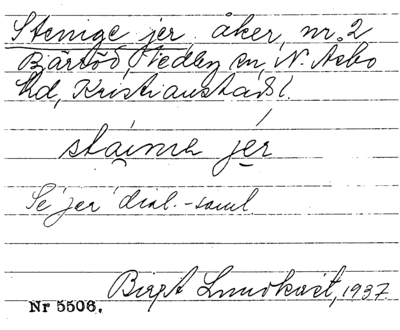 Stenige jer, åker, nr. 2
Bäröd, Vedby sn, N. Åsbo
hd, Kristianstads l.
stäine jér
Se jer dial.-saml
Birgit Lundkvist, 1937.
Nr 5506.